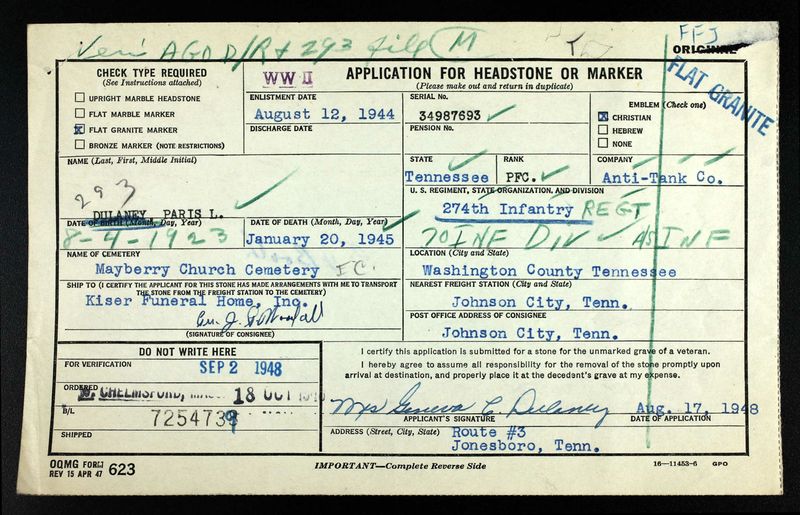 Veri AGO D/R + 293 file M
FFJ
ORIGINAL
FLAT GRANITE
CHECK TYPE REQUIRED
(See Instructions attached)
UPRIGHT MARBLE HEADSTONE
FLAT MARBLE MARKER
X FLAT GRANITE MARKER
BRONZE MARKER (NOTE RESTRICTIONS)
WW II
APPLICATION FOR HEADSTONE OR MARKER
(Please make out and return in duplicate)
ENLISTMENT DATE
August 12, 1944
DISCHARGE DATE
SERIAL No.
34987693
PENSION No.
EMBLEM (Check one)
X CHRISTIAN
HEBREW
NONE
NAME (Last, First, Middle Initial)
293
DULANEY, PARIS L.
STATE
Tennessee
RANK
PFC.
COMPANY
Anti-Tank Co.
U. S. REGIMENT, STATE ORGANIZATION, AND DIVISION
274th Infantry REGT
70 INF DIV AS INF
DATE OF BIRTH (Month, Day, Year)
8-4-1923
DATE OF DEATH (Month, Day, Year)
January 20, 1945
NAME OF CEMETERY
Mayberry Church Cemetery
LOCATION (City and State)
Washington County Tennessee
SHIP TO (I CERTIFY THE APPLICANT FOR THIS STONE HAS MADE ARRANGEMENTS WITH ME TO TRANSPORT
THE STONE FROM THE FREIGHT STATION TO THE CEMETERY)
Kiser Funeral Home, Inc.
(SIGNATURE OF CONSIGNEE)
NEAREST FREIGHT STATION (City and State)
Johnson City, Tenn.
POST OFFICE ADDRESS OF CONSIGNEE
Johnson City, Tenn.
DO NOT WRITE HERE
FOR VERIFICATION
SEP 2 1948
ORDERED
N. CHELMSFORD, 18 OCT
B/L
7254738
SHIPPED
I certify this application is submitted for a stone for the unmarked grave of a veteran.
I hereby agree to assume all responsibility for the removal of the stone promptly upon
arrival at destination, and properly place it at the decedent's grave at my expense.
Mrs Geneva C. Dulaney Aug. 17, 1948
APPLICANT'S SIGNATURE DATE OF APPLICATION
ADDRESS (Street, City, State) Route #3
Jonesboro, Tenn.
OQMG FORM 623
REV 15 APR 47
IMPORTANT—Complete Reverse Side
16—11453-6 GPO